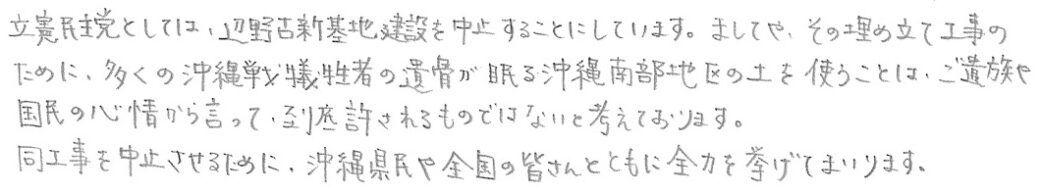 立憲民主党としては、辺野古新基地建設を中止することにしています。ましてや、その埋め立て工事の
ために、多くの沖縄戦犠牲者の遺骨が眠る沖縄南部地区の土を使うことは、ご遺族や
国民の心情から言って、到底許されるものではないと考えております。
同工事を中止させるために、沖縄県民や全国の皆さんとともに全力を挙げてまいります。